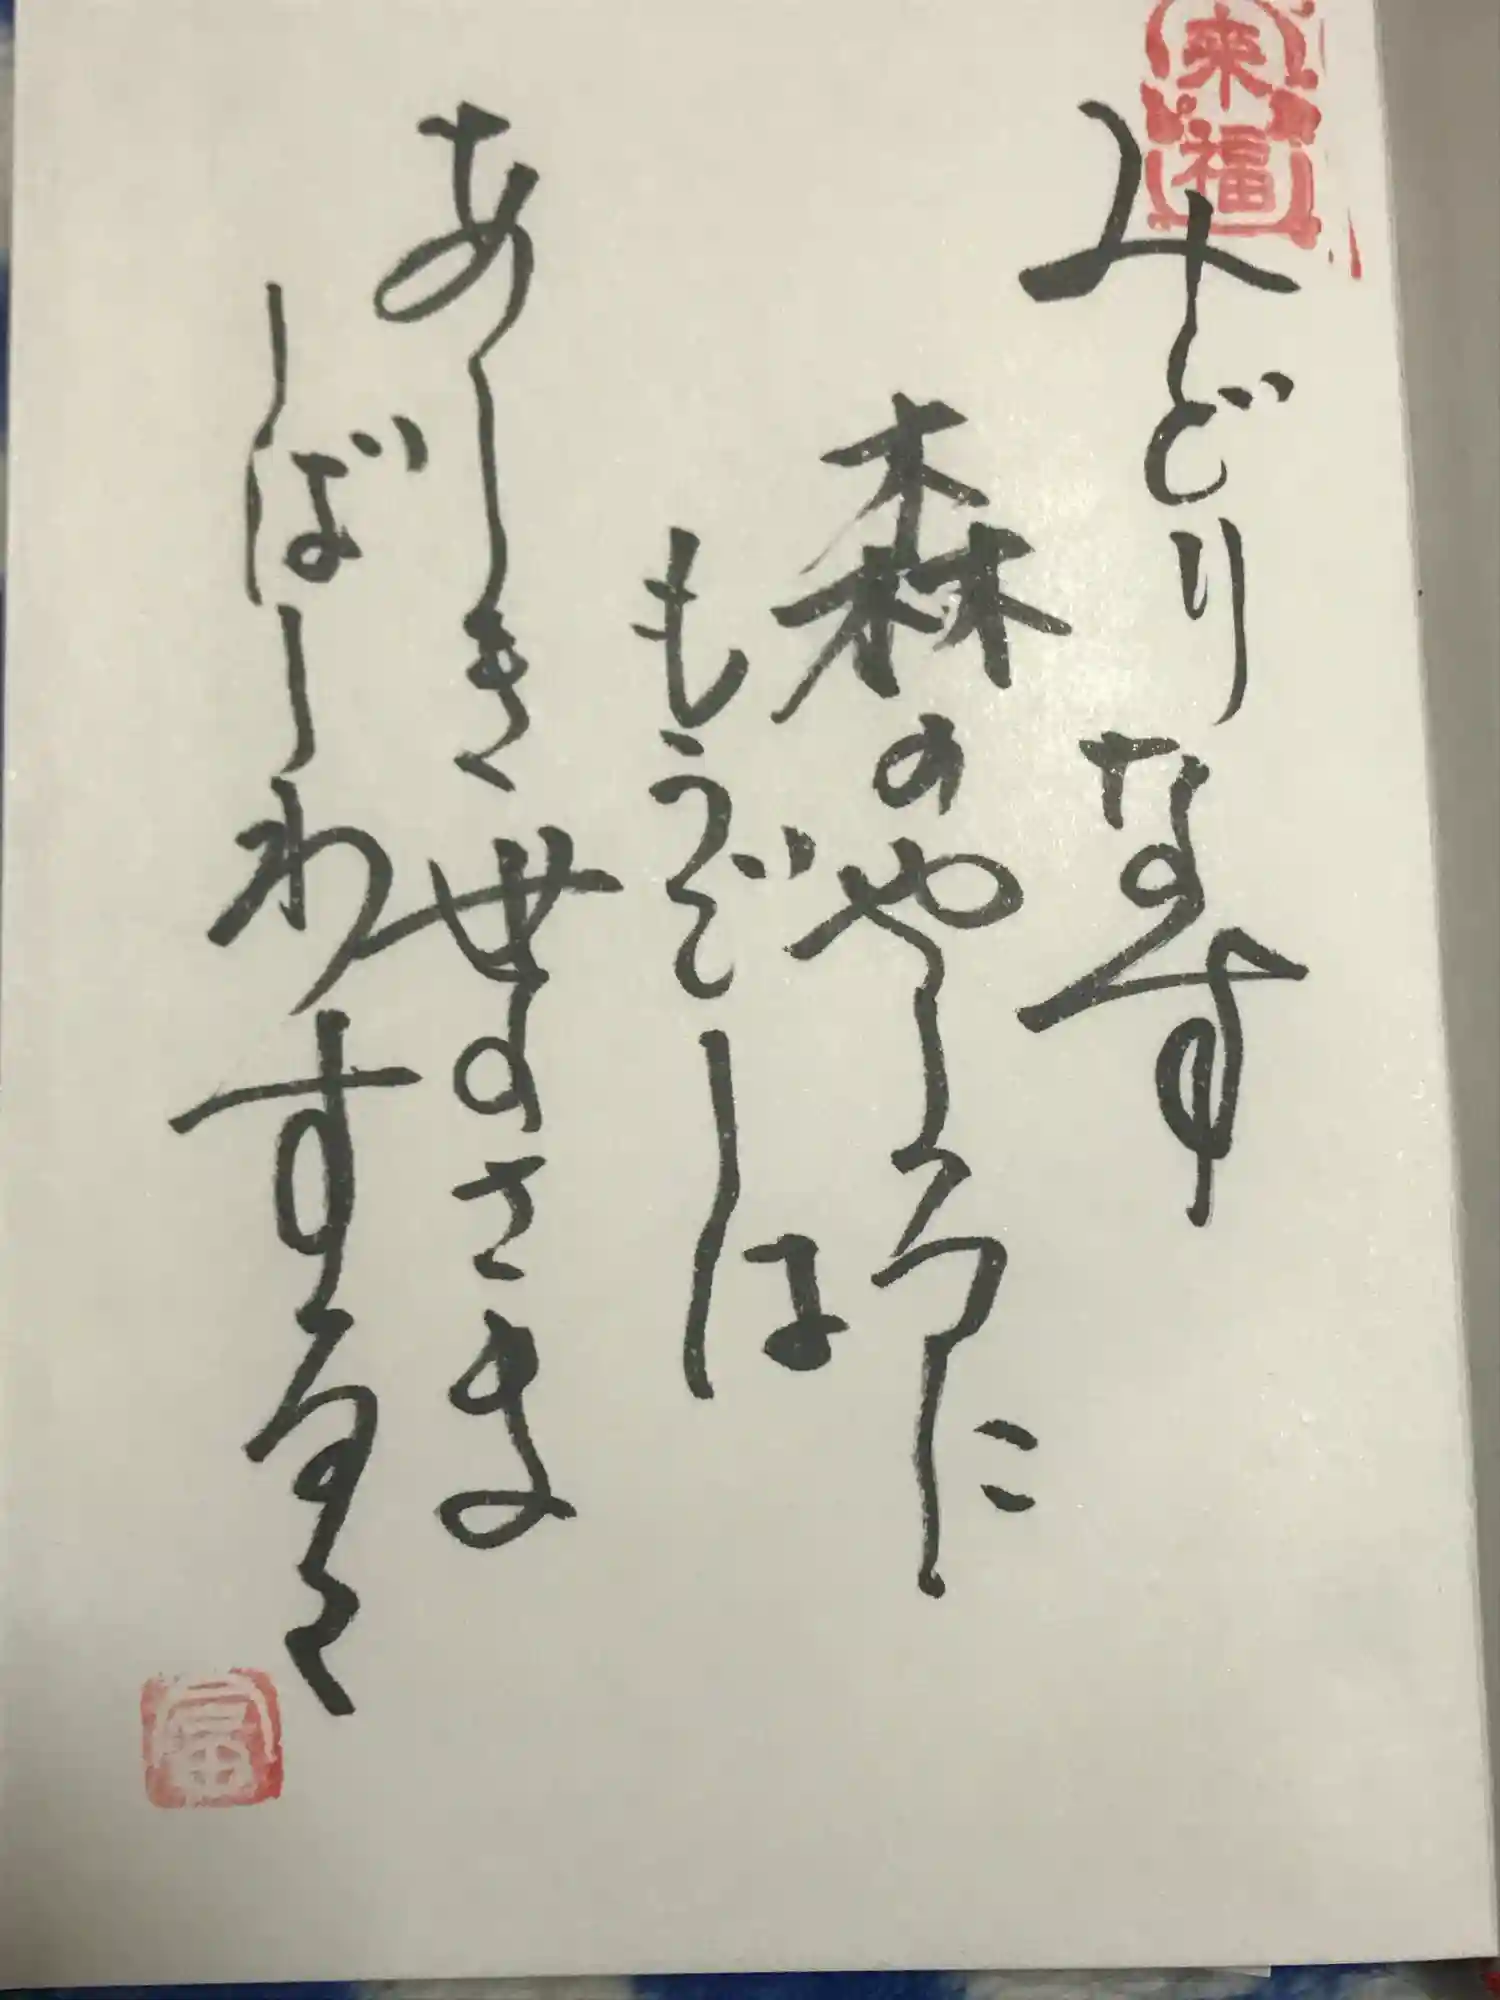 来福
みどりなす
森のやしろに
もうでしは
あしき世のさま
しばしわするる